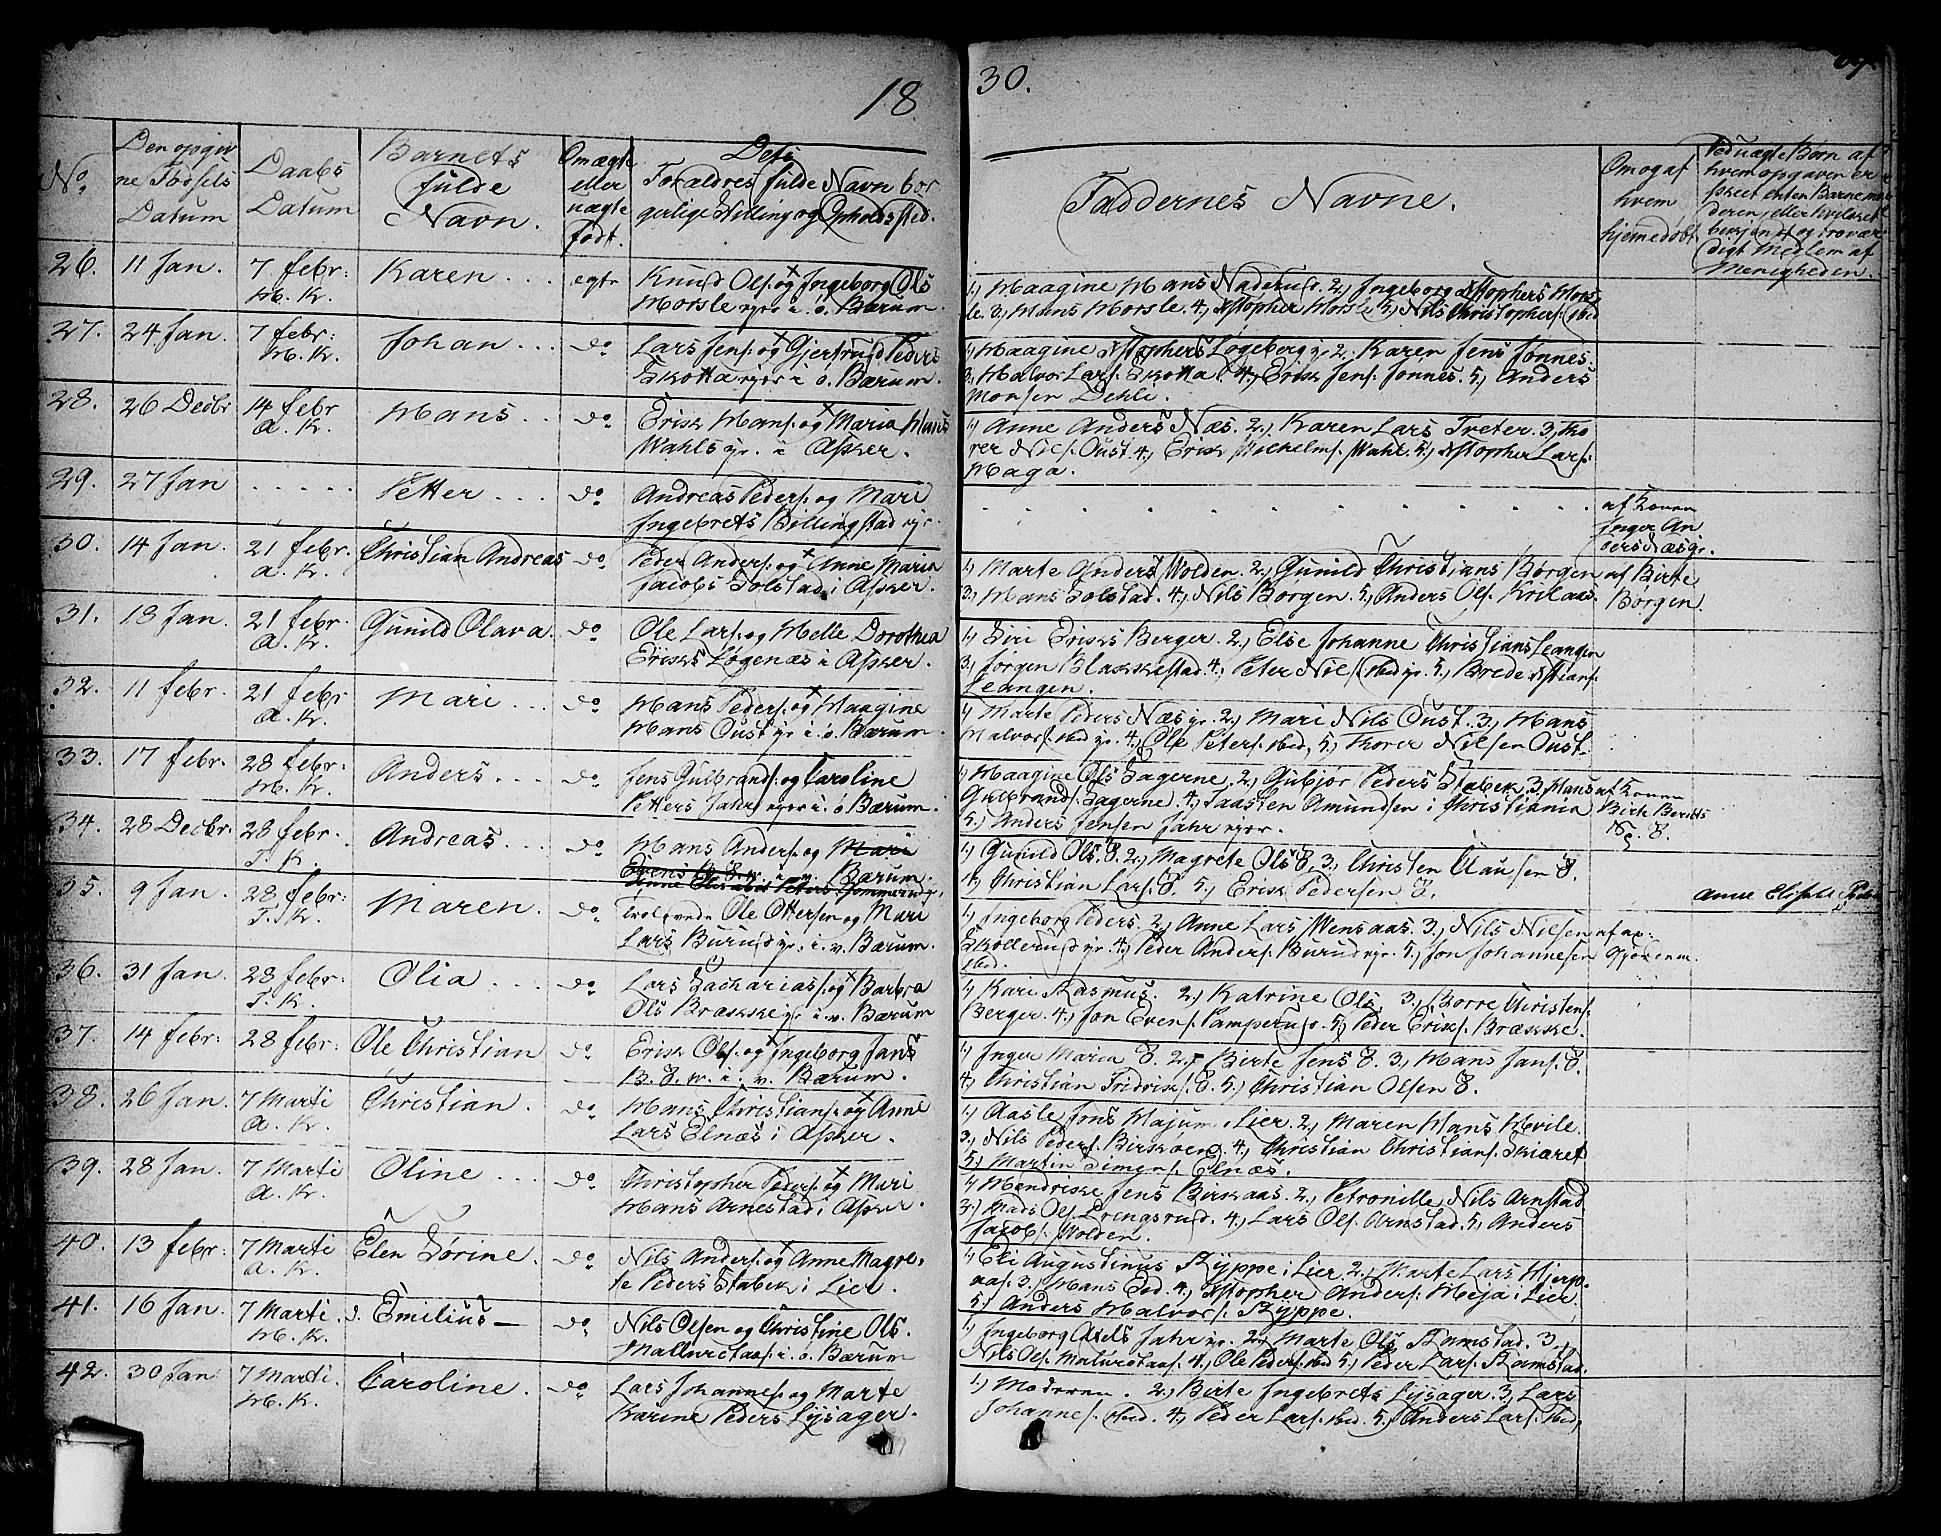 18
30.
No.
Den opgiv
ne Fødsels
Datum
Daabs
Datum
Barnets
fulde
Navn.
Om ægte
eller
uægte
født.
Dets
Forældres fulde Navn bor
gerlige Stilling og Opholdssted.
Faddernes Navne.
Om og af
hvem
hjemedøbt
Ved uægte Børn af
hvem opgaven er
skeet enten Barnemo
deren, eller hvilket
digt Medlem af
Menigheden.
26. 11 Jan. 7 febr: Karen egte Knud Ols. og Ingeborg Ols
H. K. Horsle gr i ø. Bærum.
1) Haagine Hans Naderud. 2, Ingeborg Xstophers Hors
le. 3, Hans Horsle. 4, Xstopher Horsle 5, Nils Christophers. ibid
27. 24 Jan. 7 febr: Johan do Lars Jens. og Gjertrud Peders
H. K. Skotta i ø. Bærum.
1) Haagine Xstophers Løgeberg gr 2. Karen Jens Jonnes.
3, Halvor Lars. Skotta. 4, Erik Jens. Jonnes. 5, Anders
Monsen Dehli.
28. 26 Decbr 14 febr Hans do Erik Hans. og Maria Hans
A. K. Wahls gr. i Asker.
1) Anne Anders Næs. 2, Karen Lars Treter. 3, Tho
rer Nils. Oust. 4, Erik Wilhelms. Wahl. 5, Xstopher Lars.
Haga.
29. 27 Jan Petter do Andreas Peders. og Mari
Ingebrets Billingstad gr.
af Konen
Inger An
ders Næs gr.
30. 14 Jan. 21 febr. Christian Andreas do Peder Anders. og Anne Maria
A. K. Jacobs Solstad i Asker.
1) Marte Anders Wolden. 2, Gunild Christians Borgen af Birte
3, Hans Solstad. 4, Nils Borgen. 5, Anders Ols. Hvilaas. Børgen.
31. 18 Jan. 21 febr. Gunild Olava do Ole Lars. og Helle Dorothea
A. K. Eriks Løgenæs i Asker.
1) Siri Eriks Berger. 2, Else Johanne Christians Leangen
3, Jørgen Blakkestad. 4, Peter Nils. ibid gr. 5, Brede Xstians.
Leangen.
32. 11 febr. 21 febr. Mari do Hans Peders. og Haagine
A. K. Hans Oust gr i ø. Bærum.
1) Marte Peders Næs gr. 2, Mari Nils Oust. 3, Hans
Halvors. ibid gr. 4, Ole Peters. ibid, 5, Thorer Nilsen Oust.
33. 17 febr. 28 febr. Anders do Jens Gulbrands. og Caroline
H. K. Petters Jahr i ø Bærum.
1) Haagine Ols Sagerne. 2, Gubjør Peders Stabek 3, Hans af Konen
Gulbrands. Sagerne. 4, Taasten Amundsen i Christiania Birte Berits
5, Anders Jensen Jahr gr. Ng. 8.
34. 28 Decbr. 28 febr. Andreas do Hans Anders. og Mari
T. K. i v. Bærum.
1) Gunild Ols. 8. 2, Magrete Ols 8. 3, Christen Clausen 8.
4, Christian Lars. 8. 5, Erik Pedersen 8.
35. 9 Jan. 28 febr. Maren do Ole Ottersen og Mari
T. K. Lars Burud gr. i v. Bærum.
1, Ingeborg Peders. 2, Anne Lars Wensaas. 3, Nils Nielsen
Skollerud gr. 4, Peder Anders. Burud gr. 5, Jon Johannesen
ibid.
36. 31 Jan. 28 febr. Olia do Lars Zacharias. og Barbra
T. K. Ols Brække gr. i v. Bærum
1, Kari Rasmus. 2, Katrine Ols 3, Borre Christens.
Berger. 4, Jon Evens. Pamperud. 5, Peder Eriks. Brække.
37. 14 febr. 28 febr. Ole Christian do Erik Ols. og Ingeborg Jans
B. 8. v. i v. Bærum.
1) Inger Maria 8. 2, Birte Jens 8. 3, Hans Jans. 8.
4, Christian Fridriks. 8. 5, Christian Olsen 8.
38. 26 Jan. 7 Marti Christian. do Hans Christians. og Anne
A. K. Lars Elnæs i Asker.
1, Aasle Jons Hajum i Lier. 2, Maren Hans Hvile.
3, Nils Peders. Birkøen. 4, Christian Christians. Skiæret
5, Martin Simens. Elnæs.
39. 28 Jan. 7 Marti Oline do Christopher Peders. og Mari
A. K. Hans Arnestad i Asker.
1) Hendrikke Jens Birkaas. 2, Petronille Nils Arnstad
3, Mads Ols. Drengsrud. 4, Lars Ols. Arnstad. 5, Anders
Jacobs. Wolden.
40. 13 febr. 7 Marti Elen Sørine. do Nils Anders. og Anne Magre-
A. K. te Peders Stabek i Lier.
1) Eli Augustinus Ryppe i Lier. 2, Marte Lars Hjerp-
aas. 3, Hans Eed. 4, Xstopher Anders. Heja i Lier.
5, Anders Halvors. Ryppe.
41. 16 Jan. 7 Marti Emilius do Nils Olsen og Christine Ols.
H. K. i ø. Bærum
1, Ingeborg Axels Jahr gr. 2, Marte Ols Ramstad. 3,
Nils Ols. 4, Ole Peders. ibid 5, Peder Lars. Ramstad.
42. 30 Jan 7 Marti. Caroline. do Lars Johannes. og Marte
H. K. Karine Peders Lysager.
1, Moderen. 2, Birte Ingebrets Lysager. 3, Lars
Johannes. ibid. 4, Peder Lars. ibid. 5, Anders Lars. ibid,